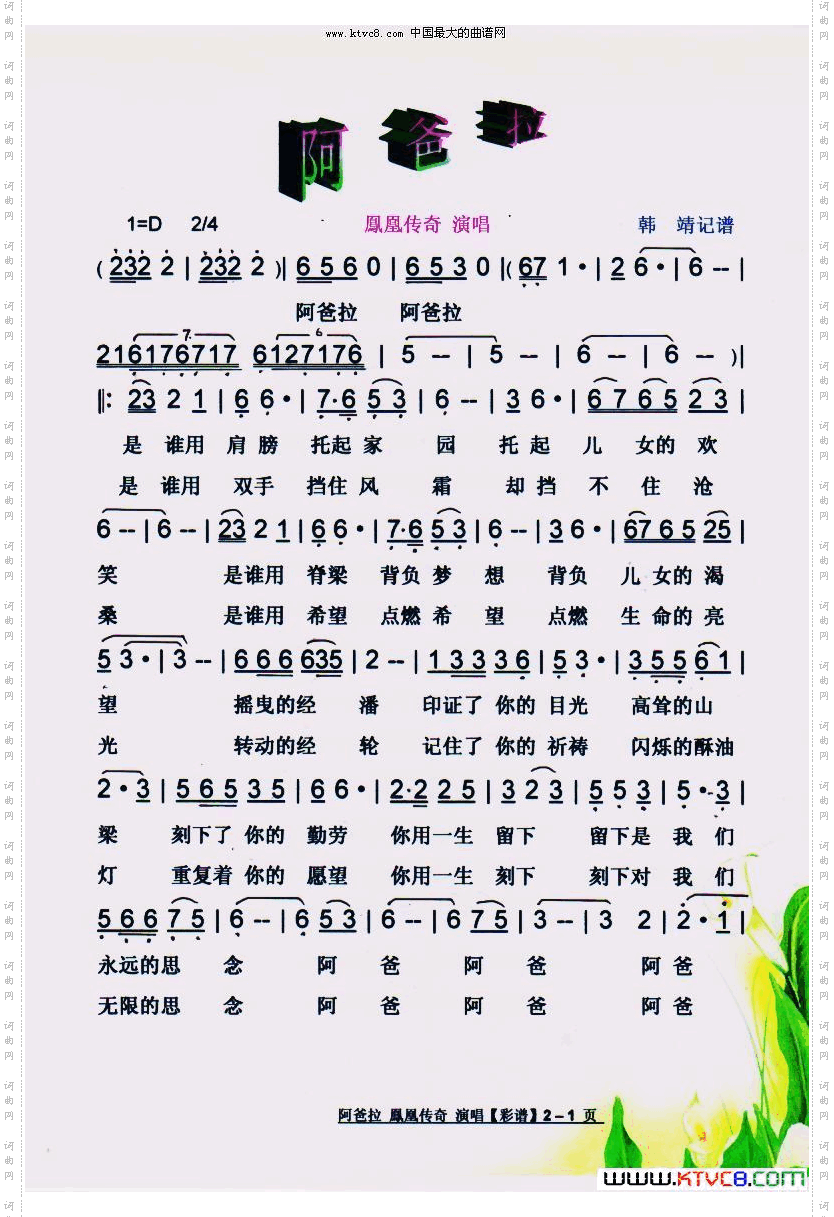 www.ktvc8.com 中国最大的曲谱网
阿爸拉
1=D 2/4 鳳凰传奇 演唱 韩 靖记谱
( 232 2 | 232 2 )| 6 5 6 0 | 6 5 3 0 |( 67 1 · | 2 6 · | 6 -- |
阿爸拉 阿爸拉
216176717 6127176 | 5 -- | 5 -- | 6 -- | 6 -- )|
7 6
‖: 23 2 1 | 6 6 · | 7·6 5 3 | 6 -- | 3 6 · | 6 7 6 5 2 3 |
是 谁用 肩 膀 托起 家 园 托 起 儿 女的 欢
是 谁用 双手 挡住 风 霜 却 挡 不 住 沧
6 -- | 6 -- | 23 2 1 | 6 6 · | 7·6 5 3 | 6 -- | 3 6 · | 67 6 5 25 |
笑 是谁用 脊梁 背负 梦 想 背负 儿 女的 渴
桑 是谁用 希望 点燃 希 望 点燃 生 命的 亮
5 3 · | 3 -- | 6 6 6 635 | 2 -- | 1 3 3 3 6 | 5 3 · | 3 5 5 6 1 |
望 摇曳的经 潘 印证了 你的 目光 高耸的山
光 转动的经 轮 记住了 你的 祈祷 闪烁的酥油
2 · 3 | 5 6 5 3 5 | 6 6 · | 2·2 2 5 | 3 2 3 | 5 5 3 | 5 · 3 |
梁 刻下了 你的 勤劳 你用一生 留下 留下是 我 们
灯 重复着 你的 愿望 你用一生 刻下 刻下对 我 们
5 6 6 7 5 | 6 -- | 6 5 3 | 6 -- | 6 7 5 | 3 -- | 3 2 | 2 · 1 |
永远的思 念 阿 爸 阿 爸 阿 爸
无限的思 念 阿 爸 阿 爸 阿 爸
阿爸拉 鳳凰传奇 演唱【彩谱】2－1 页
www.KTVC8.com
词曲网